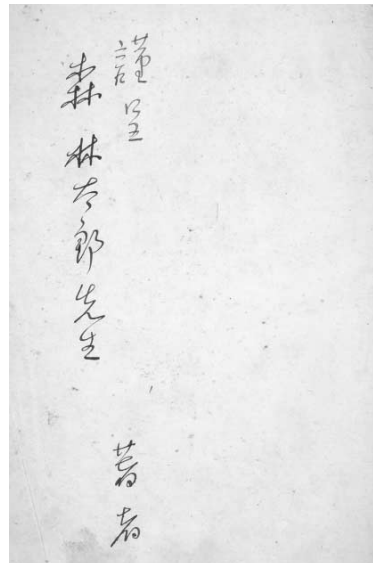 謹呈
森林太郎先生
著者